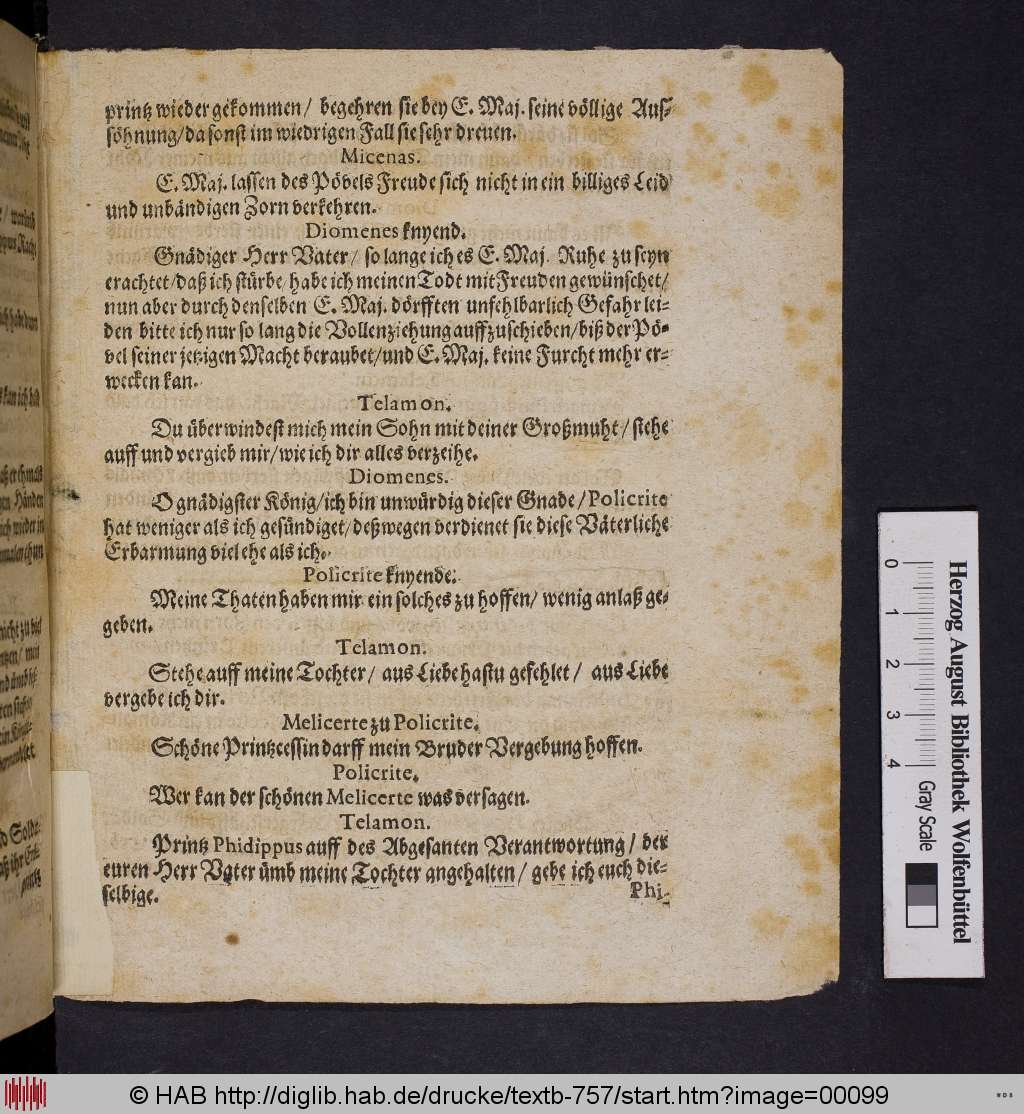 printz wieder gekommen/ begehren sie bey E. Maj. seine völlige Aus-
söhnung/da sonst im wiedrigen Fall sie sehr dreuen.
Micenas.
E. Maj. lassen des Pövels Freude sich nicht in ein billiges Leid
und unbändigen Zorn verkehren.
Diomenes knyend.
Gnädiger Herr Vater/ so lange ich es E. Maj. Ruhe zu seyn
erachtet/daß ich stürbe/ habe ich meinen Todt mit Freuden gewünschet/
nun aber durch denselben E. Maj. dörfften unfehlbarlich Gefahr lei-
den bitte ich nur so lang die Vollenziehung auffzuschieben/biß der Pö-
vel seiner jetzigen Macht beraubet/und E. Maj. keine Furcht mehr er-
wecken kan.
Telamon.
Du überwindest mich mein Sohn mit deiner Großmuht/ stehe
auff und vergieb mir/wie ich dir alles verzeihe.
Diomenes.
O gnädigster König/ich bin unwürdig dieser Gnade/Policrite
hat weniger als ich gesündiget/deßwegen verdienet sie diese Väterliche
Erbarmung viel ehe als ich.
Policrite knyende.
Meine Thaten haben mir ein solches zu hoffen/ wenig anlaß ge-
geben.
Telamon.
Stehe auff meine Tochter/ aus Liebe hastu gefehlet/ aus Liebe
vergebe ich dir.
Melicerte zu Policrite.
Schöne Printzcessin darff mein Bruder Vergebung hoffen.
Policrite.
Wer kan der schönen Melicerte was versagen.
Telamon.
Printz Phidippus auff des Abgesanten Verantwortung/ der
euren Herr Vater ümb meine Tochter angehalten/ gebe ich euch die-
selbige.
Phi-
0 1 2 3 4
Herzog August Bibliothek Wolfenbüttel
Gray Scale
© HAB http://diglib.hab.de/drucke/textb-757/start.htm?image=00099